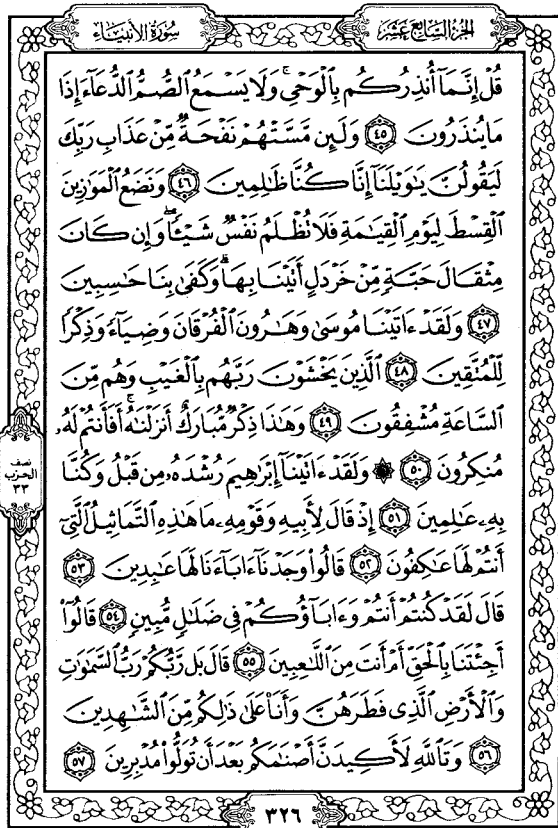 سُورَةُ الأَنبِيَاء
الجُزْءُ السَّابِعُ عَشَرَ
قُلْ إِنَّمَآ أُنذِرُكُم بِٱلْوَحْىِ ۚ وَلَا يَسْمَعُ ٱلصُّمُّ ٱلدُّعَآءَ إِذَا
مَا يُنذَرُونَ ٤٥ وَلَئِن مَّسَّتْهُمْ نَفْحَةٌ مِّنْ عَذَابِ رَبِّكَ
لَيَقُولُنَّ يَٰوَيْلَنَآ إِنَّا كُنَّا ظَٰلِمِينَ ٤٦ وَنَضَعُ ٱلْمَوَٰزِينَ
ٱلْقِسْطَ لِيَوْمِ ٱلْقِيَٰمَةِ فَلَا تُظْلَمُ نَفْسٌ شَيْـًٔا ۖ وَإِن كَانَ
مِثْقَالَ حَبَّةٍ مِّنْ خَرْدَلٍ أَتَيْنَا بِهَا ۗ وَكَفَىٰ بِنَا حَٰسِبِينَ
٤٧ وَلَقَدْ ءَاتَيْنَا مُوسَىٰ وَهَٰرُونَ ٱلْفُرْقَانَ وَضِيَآءً وَذِكْرًا
لِّلْمُتَّقِينَ ٤٨ ٱلَّذِينَ يَخْشَوْنَ رَبَّهُم بِٱلْغَيْبِ وَهُم مِّنَ
ٱلسَّاعَةِ مُشْفِقُونَ ٤٩ وَهَٰذَا ذِكْرٌ مُّبَارَكٌ أَنزَلْنَٰهُ ۚ أَفَأَنتُمْ لَهُۥ
مُنكِرُونَ ٥٠ ۞ وَلَقَدْ ءَاتَيْنَآ إِبْرَٰهِيمَ رُشْدَهُۥ مِن قَبْلُ وَكُنَّا
بِهِۦ عَٰلِمِينَ ٥١ إِذْ قَالَ لِأَبِيهِ وَقَوْمِهِۦ مَا هَٰذِهِ ٱلتَّمَاثِيلُ ٱلَّتِىٓ
أَنتُمْ لَهَا عَٰكِفُونَ ٥٢ قَالُوا۟ وَجَدْنَآ ءَابَآءَنَا لَهَا عَٰبِدِينَ ٥٣
قَالَ لَقَدْ كُنتُمْ أَنتُمْ وَءَابَآؤُكُمْ فِى ضَلَٰلٍ مُّبِينٍ ٥٤ قَالُوٓا۟
أَجِئْتَنَا بِٱلْحَقِّ أَمْ أَنتَ مِنَ ٱللَّٰعِبِينَ ٥٥ قَالَ بَل رَّبُّكُمْ رَبُّ ٱلسَّمَٰوَٰتِ
وَٱلْأَرْضِ ٱلَّذِى فَطَرَهُنَّ وَأَنَا۠ عَلَىٰ ذَٰلِكُم مِّنَ ٱلشَّٰهِدِينَ
٥٦ وَتَٱللَّهِ لَأَكِيدَنَّ أَصْنَٰمَكُم بَعْدَ أَن تُوَلُّوا۟ مُدْبِرِينَ ٥٧
نصف
الحزب
٣٣
٣٢٦